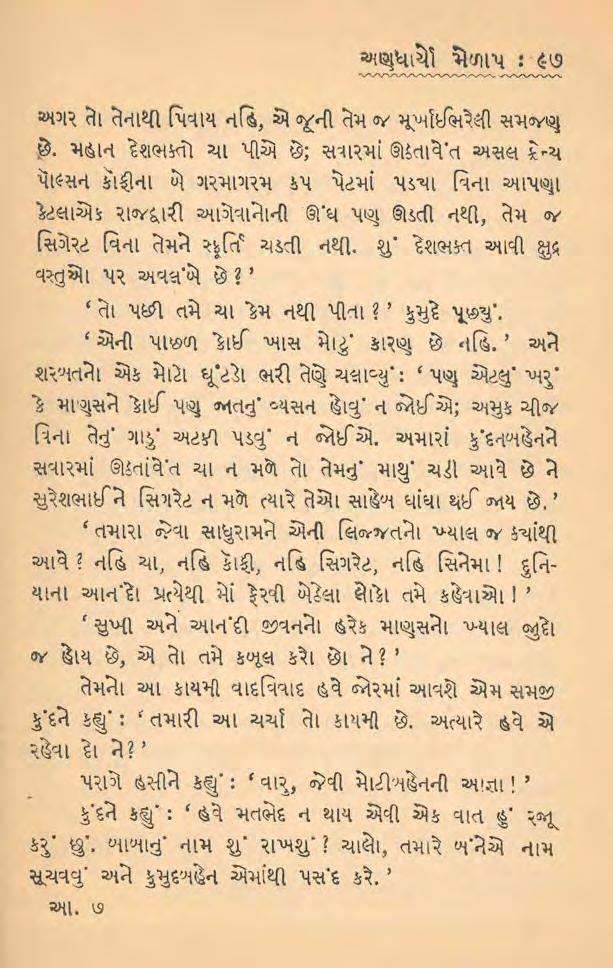 અણધાર્યો મેળાપ : ૯૭
અગર તો તેનાથી પિવાય નહિ, એ જૂની તેમ જ મૂર્ખાઈભરેલી સમજણ
છે. મહાન દેશભક્તો ચા પીએ છે; સવારમાં ઊઠતાવેંત અસલ ફ્રેન્ચ
પૉલ્સન કૉફીના બે ગરમાગરમ કપ પેટમાં પડ્યા વિના આપણા
કેટલાએક રાજદ્વારી આગેવાનોની ઊંઘ પણ ઊડતી નથી, તેમ જ
સિગરેટ વિના તેમને સ્ફૂર્તિ ચડતી નથી. શું દેશભક્ત આવી ક્ષુદ્ર
વસ્તુઓ પર અવલંબે છે ? ’
‘ તો પછી તમે ચા કેમ નથી પીતા ? ’ કુમુદે પૂછ્યું.
‘ એની પાછળ કોઈ ખાસ મોટું કારણ છે નહિ. ’ અને
શરબતનો એક મોટો ઘૂંટડો ભરી તેણે ચલાવ્યું : ‘ પણ એટલું ખરું
કે માણસને કોઈ પણ જાતનું વ્યસન હોવું ન જોઈએ; અમુક ચીજ
વિના તેનું ગાડું અટકી પડવું ન જોઈએ. અમારાં કુંદનબહેનને
સવારમાં ઊઠતાંવેંત ચા ન મળે તો તેમનું માથું ચડી આવે છે ને
સુરેશભાઈને સિગરેટ ન મળે ત્યારે તેઓ સાહેબ ઘાંઘા થઈ જાય છે. ’
‘ તમારા જેવા સાધુરામને એની લિજ્જતનો ખ્યાલ જ ક્યાંથી
આવે ? નહિ ચા, નહિ કૉફી, નહિ સિગરેટ, નહિ સિનેમા ! દુનિ-
યાના આનંદો પ્રત્યેથી મોં ફેરવી બેઠેલા લોકો તમે કહેવાઓ ! ’
‘ સુખી અને આનંદી જીવનનો હરેક માણસનો ખ્યાલ જુદો
જ હોય છે, એ તો તમે કબૂલ કરો છો ને ? ’
તેમનો આ કાયમી વાદવિવાદ હવે જોરમાં આવશે એમ સમજી
કુંદને કહ્યું : ‘ તમારી આ ચર્ચા તો કાયમી છે. અત્યારે હવે એ
રહેવા દો ને ? ’
પરાગે હસીને કહ્યું : ‘ વારુ, જેવી મોટીબહેનની આજ્ઞા ! ’
કુંદને કહ્યું : ‘ હવે મતભેદ ન થાય એવી એક વાત હું રજૂ
કરું છું. બાબાનું નામ શું રાખશું ? ચાલો, તમારે બંનેએ નામ
સૂચવવું અને કુમુદબહેન એમાંથી પસંદ કરે. ’
આ. ૭